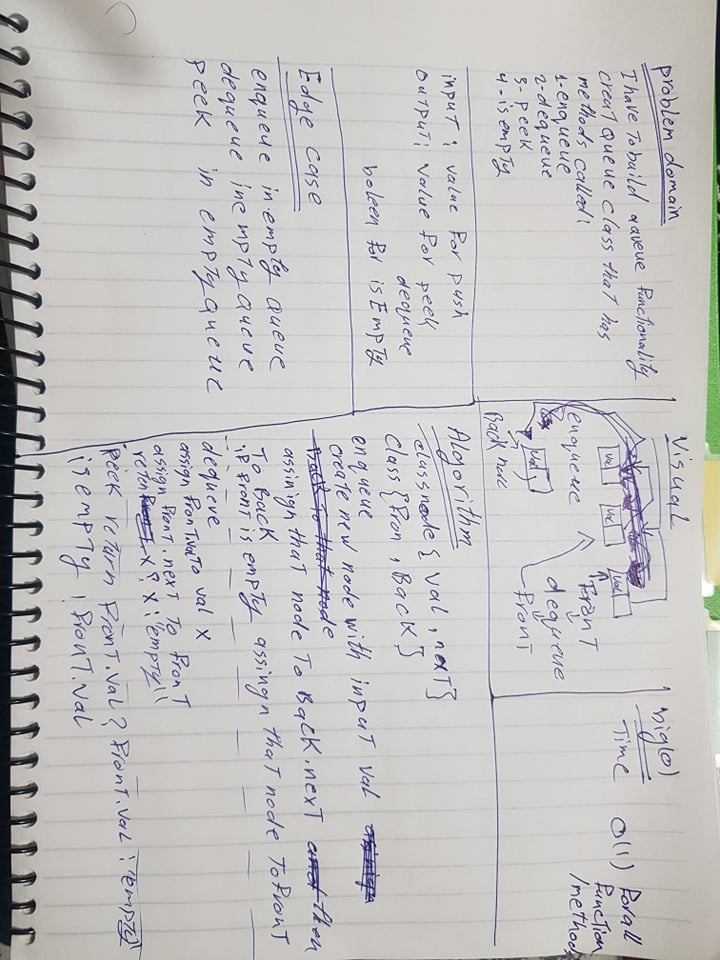 problem domain
I have to build a queue functionality
creat queue class that has
methods called:
1-enqueue
2-dequeue
3-peek
4-isempty
input: value for push
output: value for peek
dequeue
boleen for isEmpty
Edge case
enqueue in empty queue
dequeue in empty queue
peek in empty queue
Visual
val
val
val
Front
enqueue
dequeue
Front
val
Back
Algorithm
class node { val, next}
class {Fron, Back}
enqueue
create new node with input val
assinign that node To Back.next then
To Back
if Front is empty assingn that node ToFront
dequeue
assign Front.val to val X
assign Front.next To FronT
X? X: "empty"
peek return Front.val? Front.val: "empty"
isempty: Front.val
big(o)
Time O(1) For all
Function
/method